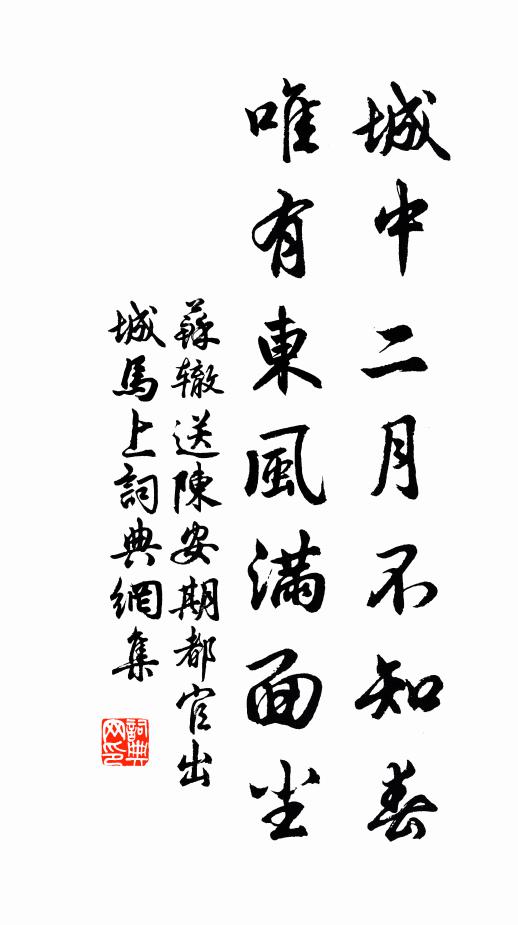 城中二月不知春
唯有東風滿面尘
蘇辙送陳安期都官出
城馬上詞典網集
詞典
网印